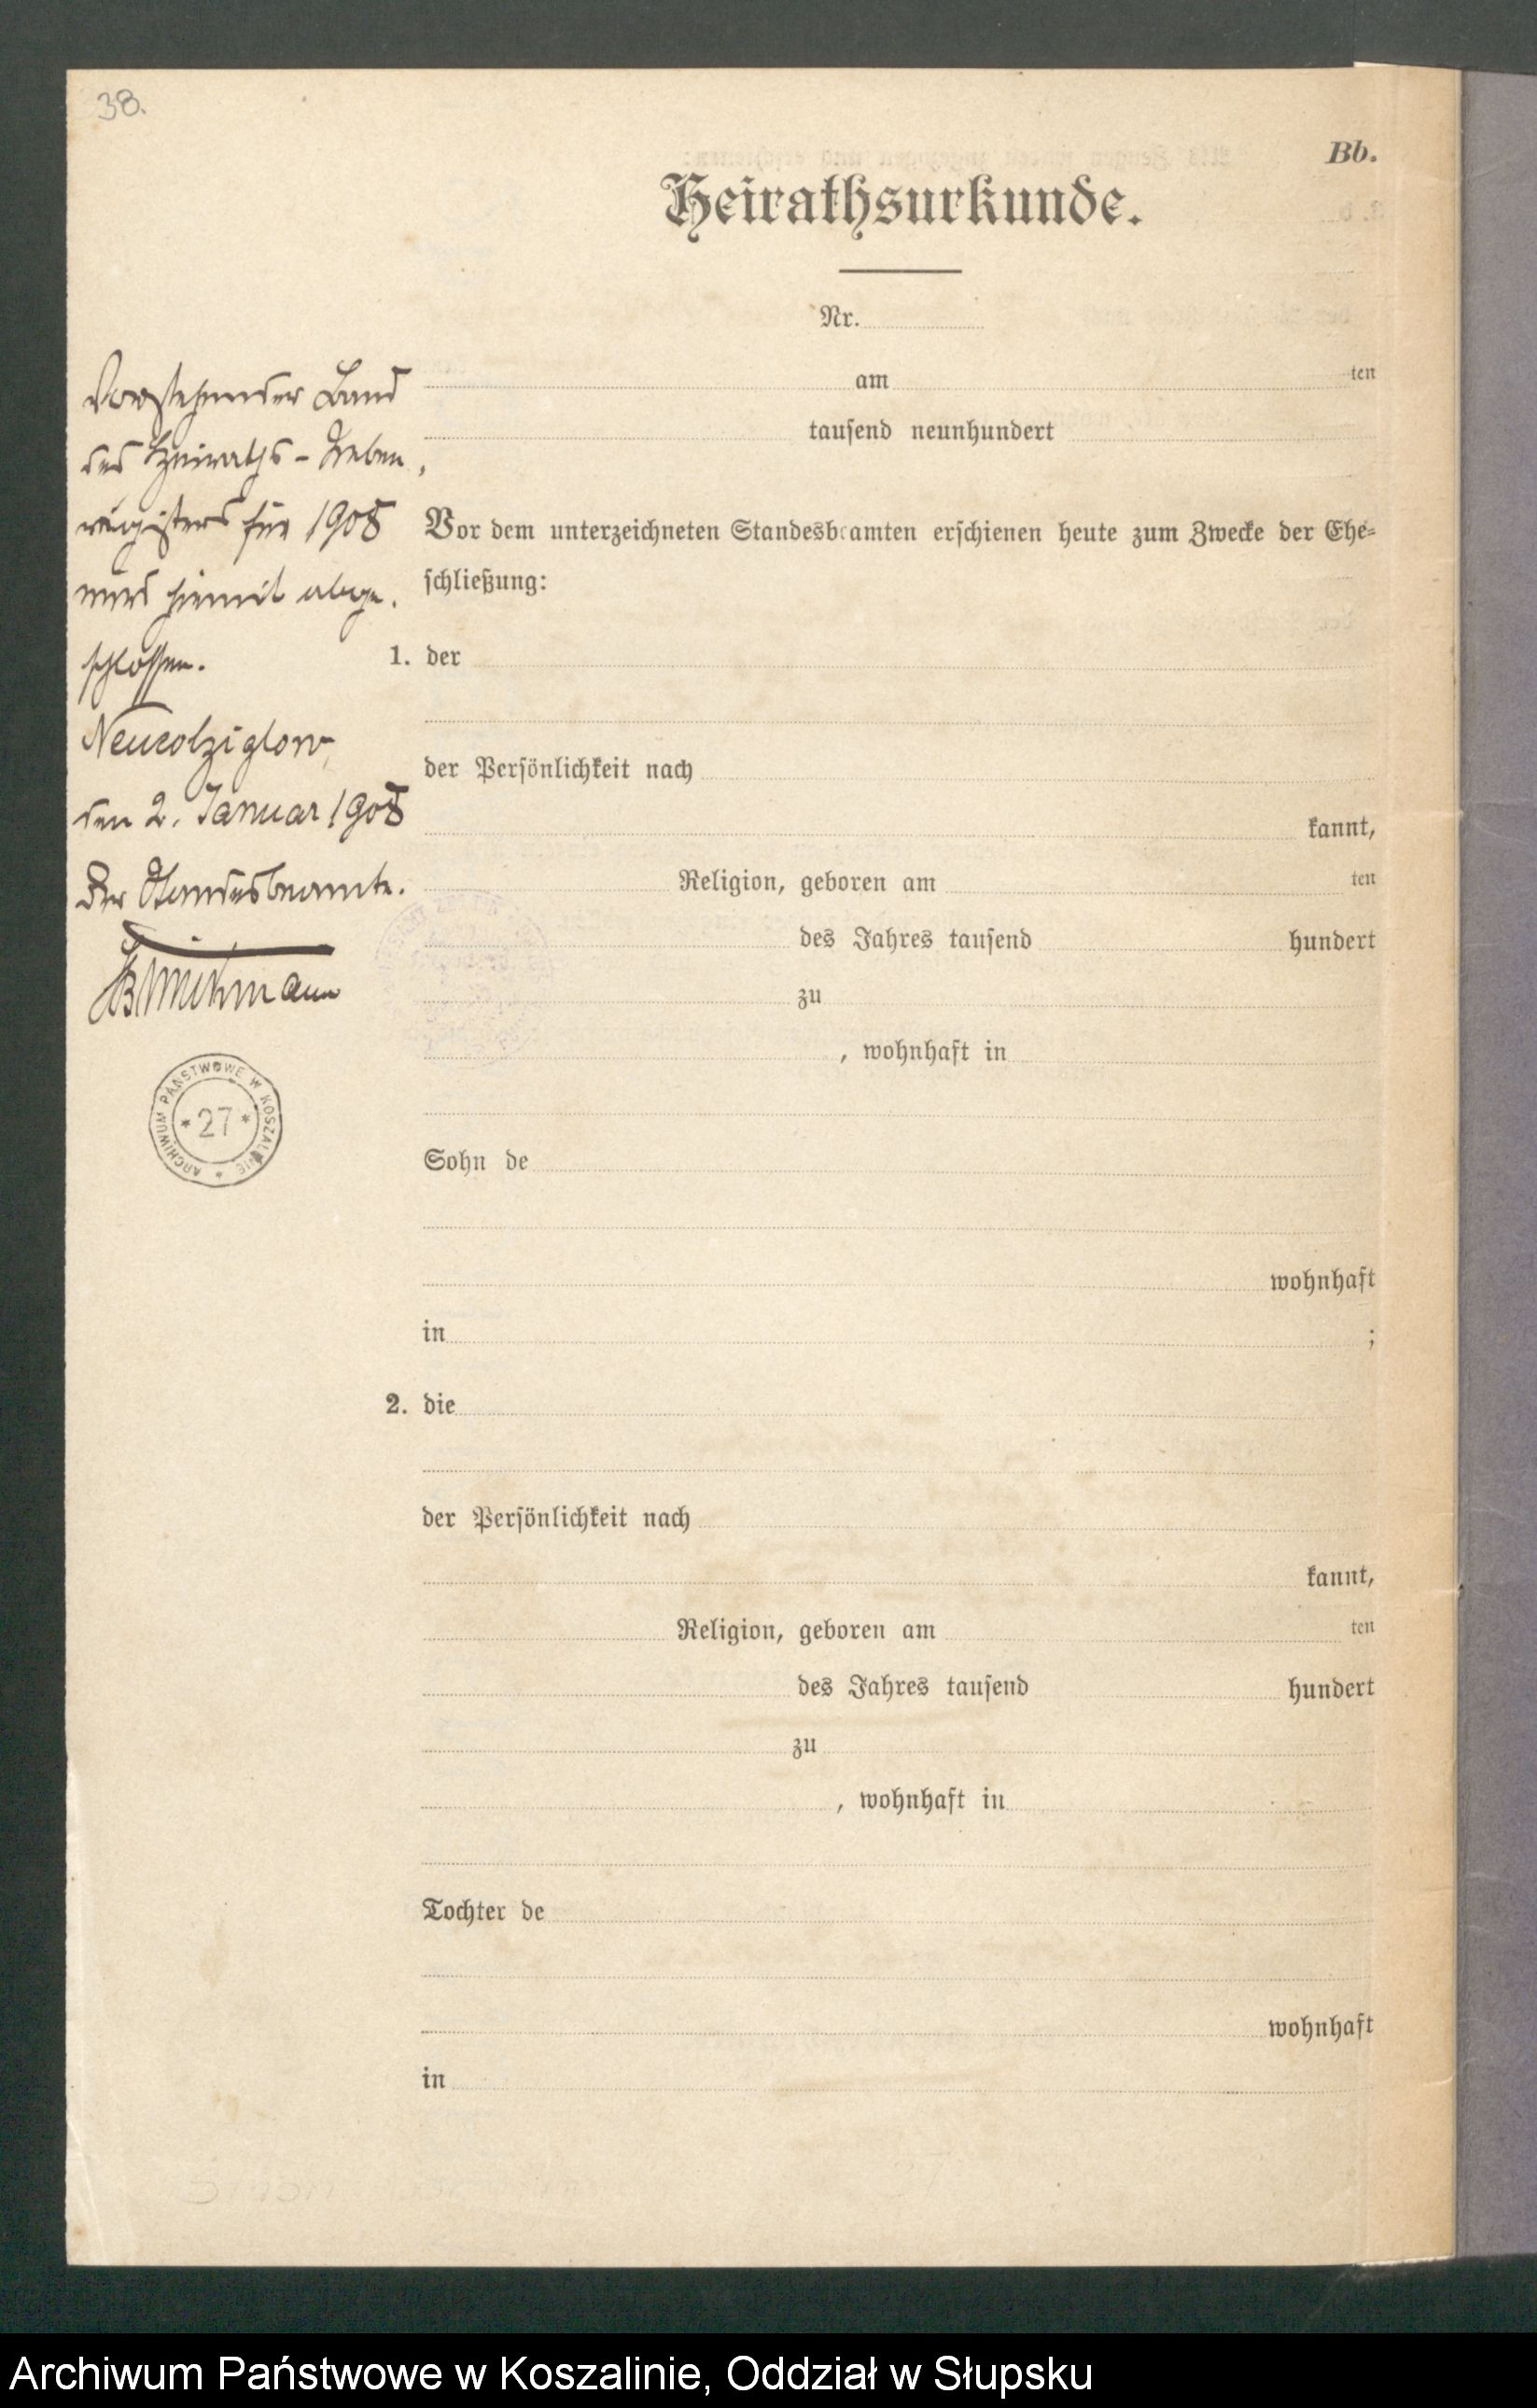 38.
Bb.
Heirathsurkunde.
Nr.
am ten
tausend neunhundert
Vorstehender Band
des Heiraths-Neben-
registers für 1908
wird hiermit abge-
schlossen.
Neukolziglow
den 2. Januar 1908
Der Standesbeamte.
Vor dem unterzeichneten Standesbeamten erschienen heute zum Zwecke der Ehe-
schließung:
1. der
der Persönlichkeit nach
kannt,
Religion, geboren am ten
des Jahres tausend hundert
zu
, wohnhaft in
ARCHIWUM PAŃSTWOWE W KOSZALINIE
* 27 *
Sohn de
wohnhaft
in ;
2. die
der Persönlichkeit nach
kannt,
Religion, geboren am ten
des Jahres tausend hundert
zu
, wohnhaft in
Tochter de
wohnhaft
in
Archiwum Państwowe w Koszalinie, Oddział w Słupsku